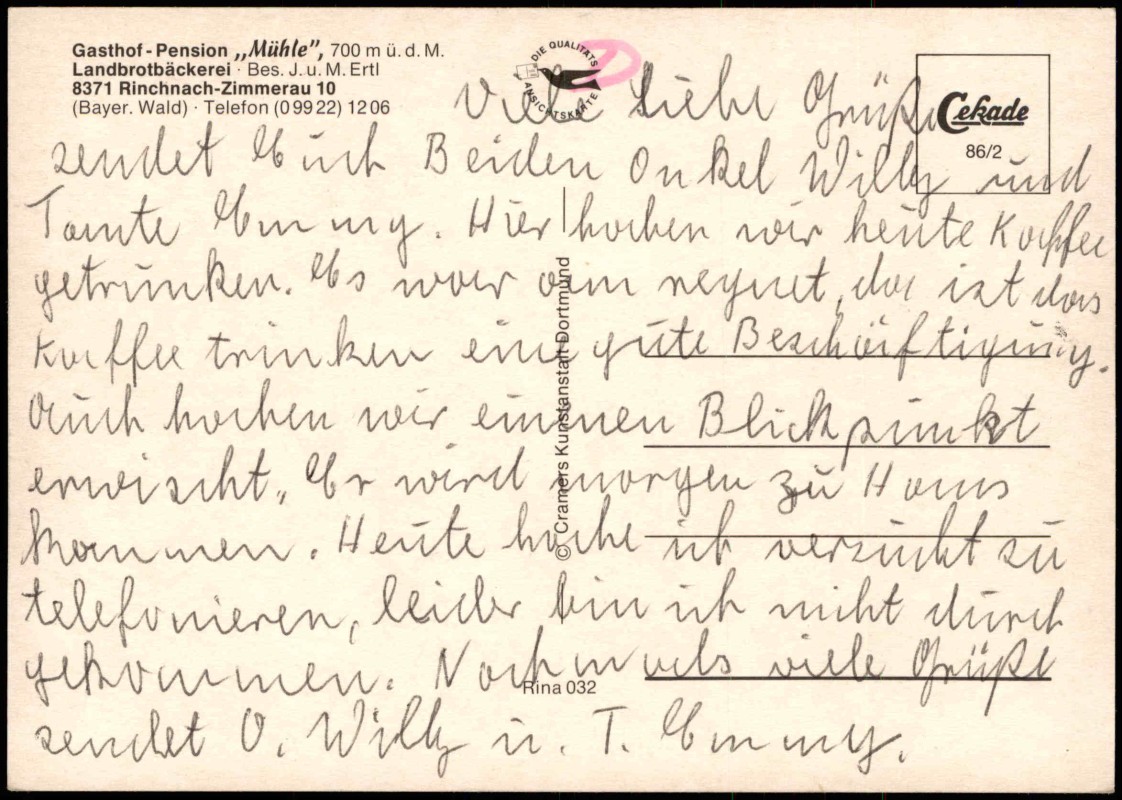 Gasthof-Pension „Mühle”, 700 m ü. d. M.
Landbrotbäckerei · Bes. J. u. M. Ertl
8371 Rinchnach-Zimmerau 10
(Bayer. Wald) · Telefon (0 99 22) 12 06
DIE QUALITÄTS
ANSICHTSKARTE
Cekade
86/2
Viele Liebe Grüße
sendet Euch Beiden Onkel Willy und
Tante Emmy. Hier haben wir heute Kaffee
getrunken. Es war am regnet, da ist das
Kaffee trinken eine gute Beschäftigung.
Auch haben wir einen Blickpunkt
erwischt. Er wird morgen zu Haus
kommen. Heute habe ich versucht zu
telefonieren, leider bin ich nicht durch
gekommen. Nochmals viele Grüße
sendet O. Willy u. T. Emmy.
© Cramers Kunstanstalt Dortmund
Rina 032